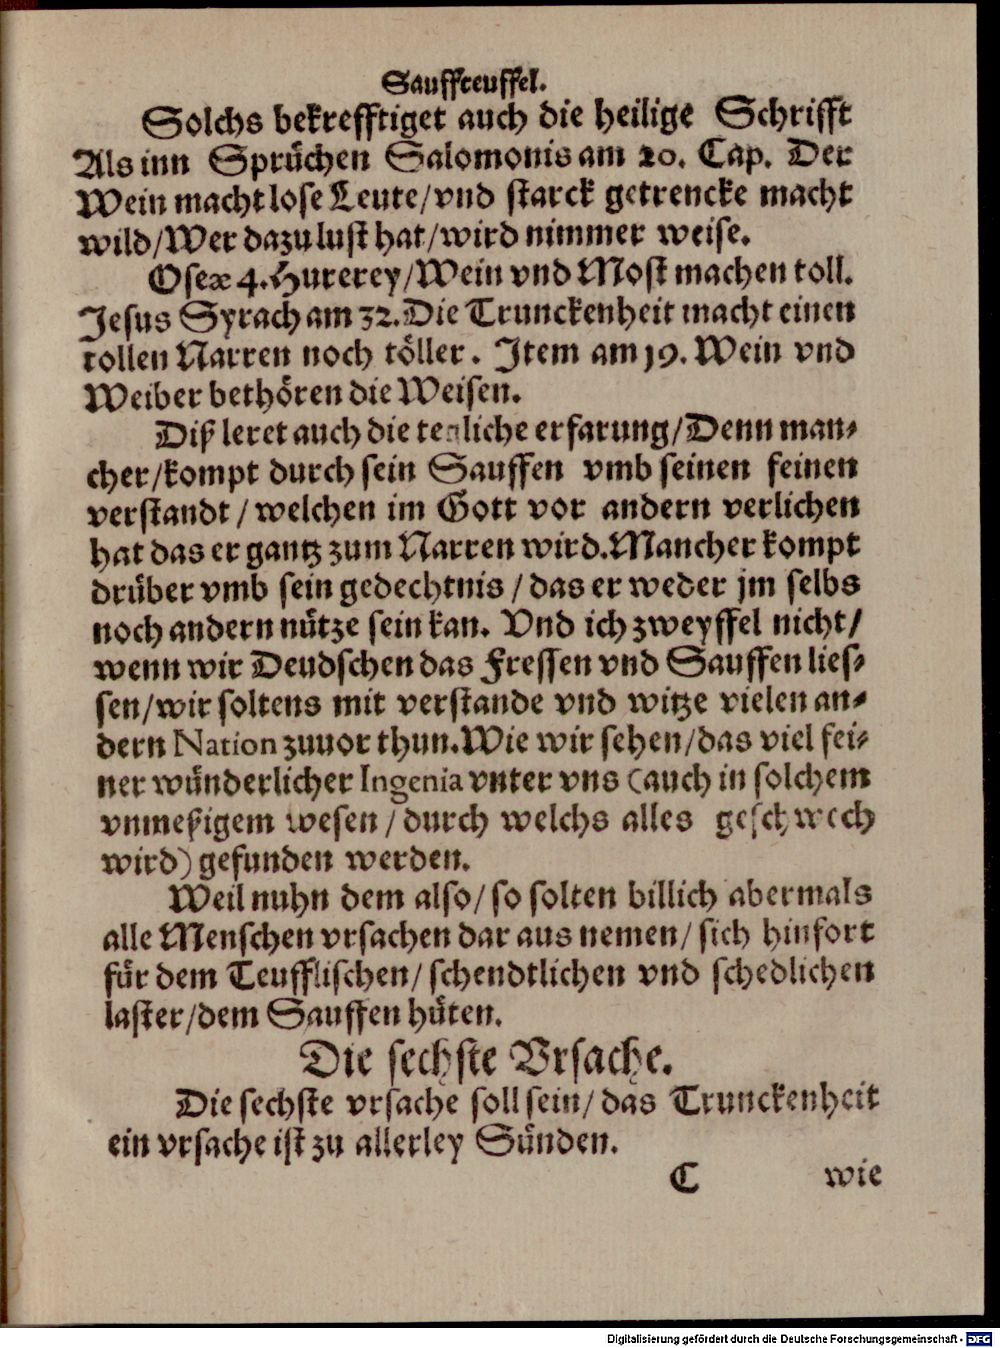 Sauffteuffel.
Solchs bekrefftiget auch die heilige Schrifft
Als inn Sprüchen Salomonis am 20. Cap. Der
Wein macht lose Leute/vnd starck getrencke macht
wild/Wer dazu lust hat/wird nimmer weise.
Oseæ 4. Hurerey/Wein vnd Most machen toll.
Jesus Syrach am 32. Die Trunckenheit macht einen
tollen Narren noch töller. Item am 19. Wein vnd
Weiber bethören die Weisen.
Diß leret auch die tegliche erfarung/Denn man-
cher/kompt durch sein Sauffen vmb seinen feinen
verstandt/welchen im Gott vor andern verlichen
hat das er gantz zum Narren wird. Mancher kompt
drüber vmb sein gedechtnis/das er weder jm selbs
noch andern nütze sein kan. Vnd ich zweyffel nicht/
wenn wir Deudschen das Fressen vnd Sauffen lies-
sen/wir soltens mit verstande vnd witze vielen an-
dern Nation zuuor thun. Wie wir sehen/das viel fei-
ner wünderlicher Ingenia vnter vns (auch in solchem
vnmeßigem wesen/durch welchs alles geschwech
wird) gefunden werden.
Weil nuhn dem also/so solten billich abermals
alle Menschen vrsachen dar aus nemen/sich hinfort
für dem Teufflischen/schendtlichen vnd schedlichen
laster/dem Sauffen hüten.
Die sechste Vrsache.
Die sechste vrsache soll sein/das Trunckenheit
ein vrsache ist zu allerley Sünden.
C wie
Digitalisierung gefördert durch die Deutsche Forschungsgemeinschaft - DFG